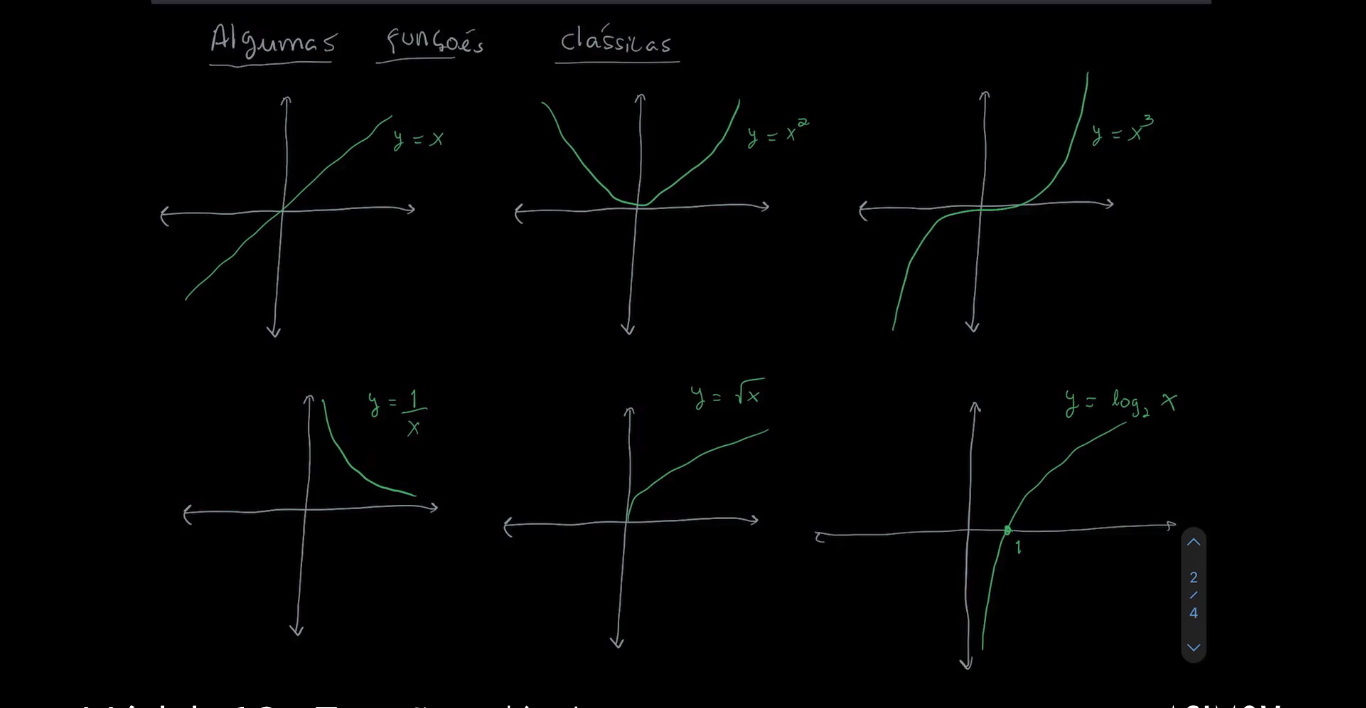 Algumas funções clássicas
y = x
y = x²
y = x³
y = 1/x
y = √x
y = log₂ x
1
2
/
4